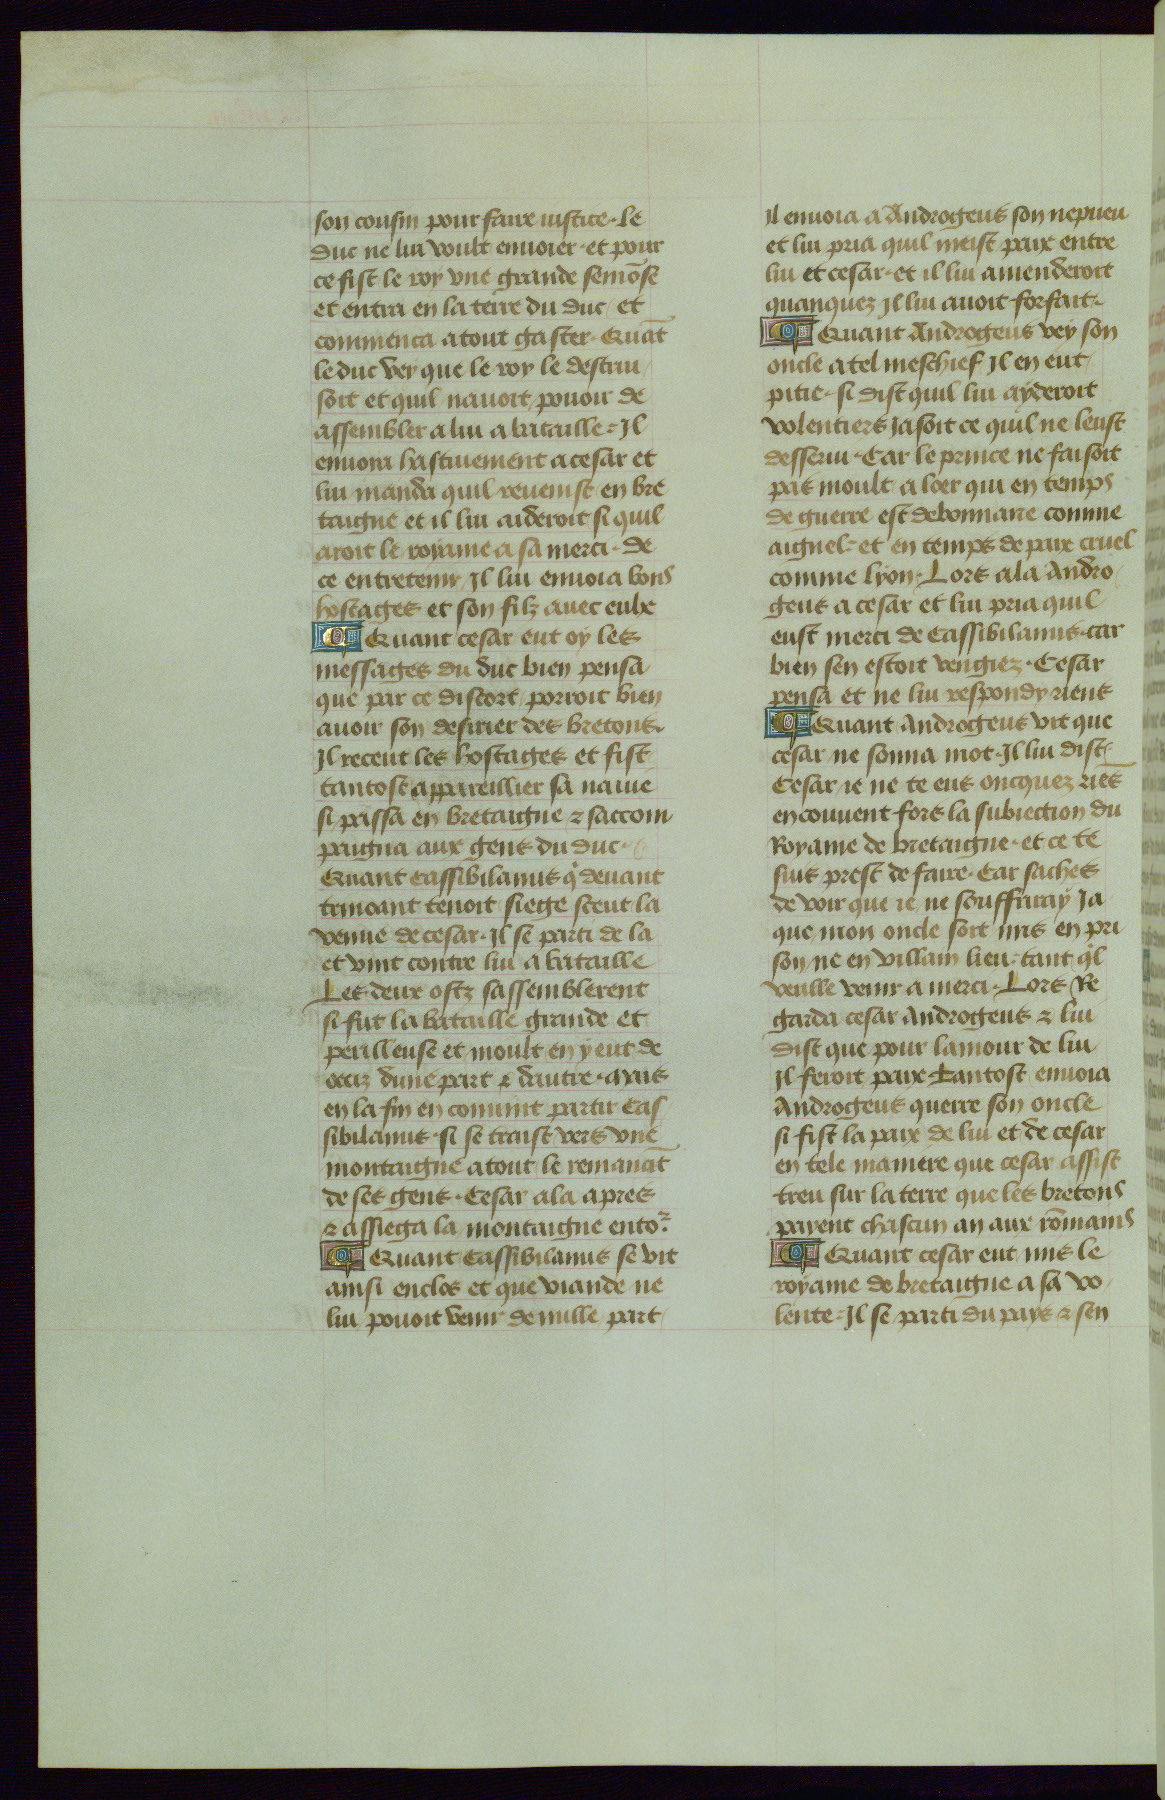 son cousin pour faire iustice· le
duc ne lui voult enuoier· et pour
ce fist le roy vne grande semōse
et entra en la terre du duc et
commenca a tout gaster· Quāt
le duc vey que le roy le destrui
soit et quil nauoit pouoir de
assembler a lui a bataille· Il
enuoia hastiuement a cesar et
lui manda quil reuenist en bre
taigne et il lui aideroit si quil
aroit le royame a sa merci· de
ce entretenir Il lui enuoia bons
hostages et son filz auec eulx
Quant cesar eut oy les
messages du duc bien pensa
que par ce discort porroit bien
auoir son desirier des bretons·
Il receut les hostages et fist
tantost appareillier sa nauie
si passa en bretaigne ⁊ saccom
paigna aux gens du duc·
Quant Cassibilanus q̄ deuant
trinoant tenoit siege sceut la
venue de cesar· Il se parti de la
et vint contre lui a bataille
Les deux ostz sassemblerent
si fut la bataille grande et
perilleuse et moult en y eut de
occiz dune part ⁊ dautre· Mais
en la fin en conuint partir Cas
sibilanus· si se traist vers vne
montaigne atout le remanāt
de ses gens· Cesar ala apres
⁊ assiega la montaigne entor̄
Quant Cassibilanus se vit
ainsi enclos et que viande ne
lui pouoit venir de nulle part
Il enuoia a Androgeus son nepueu
et lui pria quil meist paix entre
lui et cesar· et il lui amenderoit
quanquez Il lui auoit forfait·
Quant Androgeus vey son
oncle a tel meschief Il en eut
pitie· si dist quil lui ayderoit
volentiers Ja soit ce quil ne leust
desserui· Car le prince ne faisoit
pas moult a loer qui en temps
de guerre est debonnaire comme
aignel· et en temps de paix cruel
comme lyon· Lors ala Andro
geus a cesar et lui pria quil
eust merci de Cassibilanus· car
bien sen estoit vengiez· Cesar
pensa et ne lui respondy riens
Quant Androgeus vit que
cesar ne sonna mot· Il lui dist
Cesar ie ne te eus oncquez riēs
en couuent fors la subiection du
Royame de bretaigne· et ce te
suis prest de faire· Car saches
de voir que ie ne souffriray Ja
que mon oncle soit mis en pri
son, ne en villain lieu· tant q̄l
veulle venir a merci· Lors Re
garda cesar Androgeus ⁊ lui
dist que pour lamour de lui
Il feroit paix· Tantost enuoia
Androgeus querre son oncle
si fist la paix de lui et de cesar
en tele maniere que cesar assist
treu sur la terre que les bretons
paient chascun an aux rōmains
Quant cesar eut mis le
royame de bretaigne a sa vo
lente· Il se parti du pays ⁊ sen